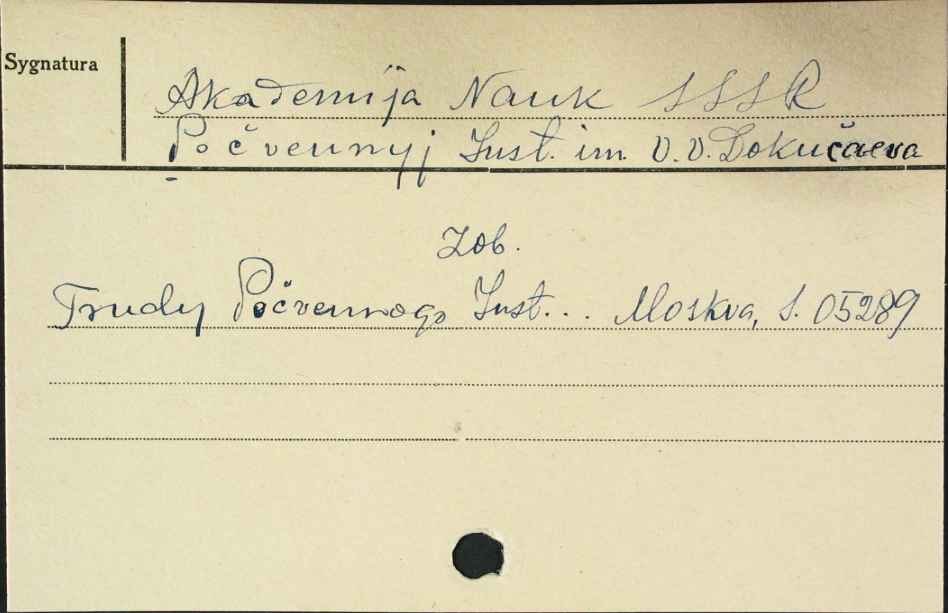 Sygnatura
Akademija Nauk SSSR
Počvennyj Inst. im. V.V. Dokučaeva
Zob.
Trudy Počvennogo Inst... Moskva, S. 05289